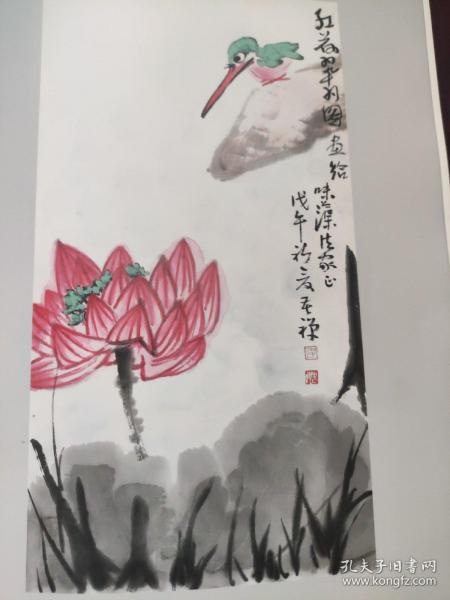 红荷翠羽图画给
味渫法家正
戊午初夏苦禅
孔夫子旧书网
www.kongfz.com